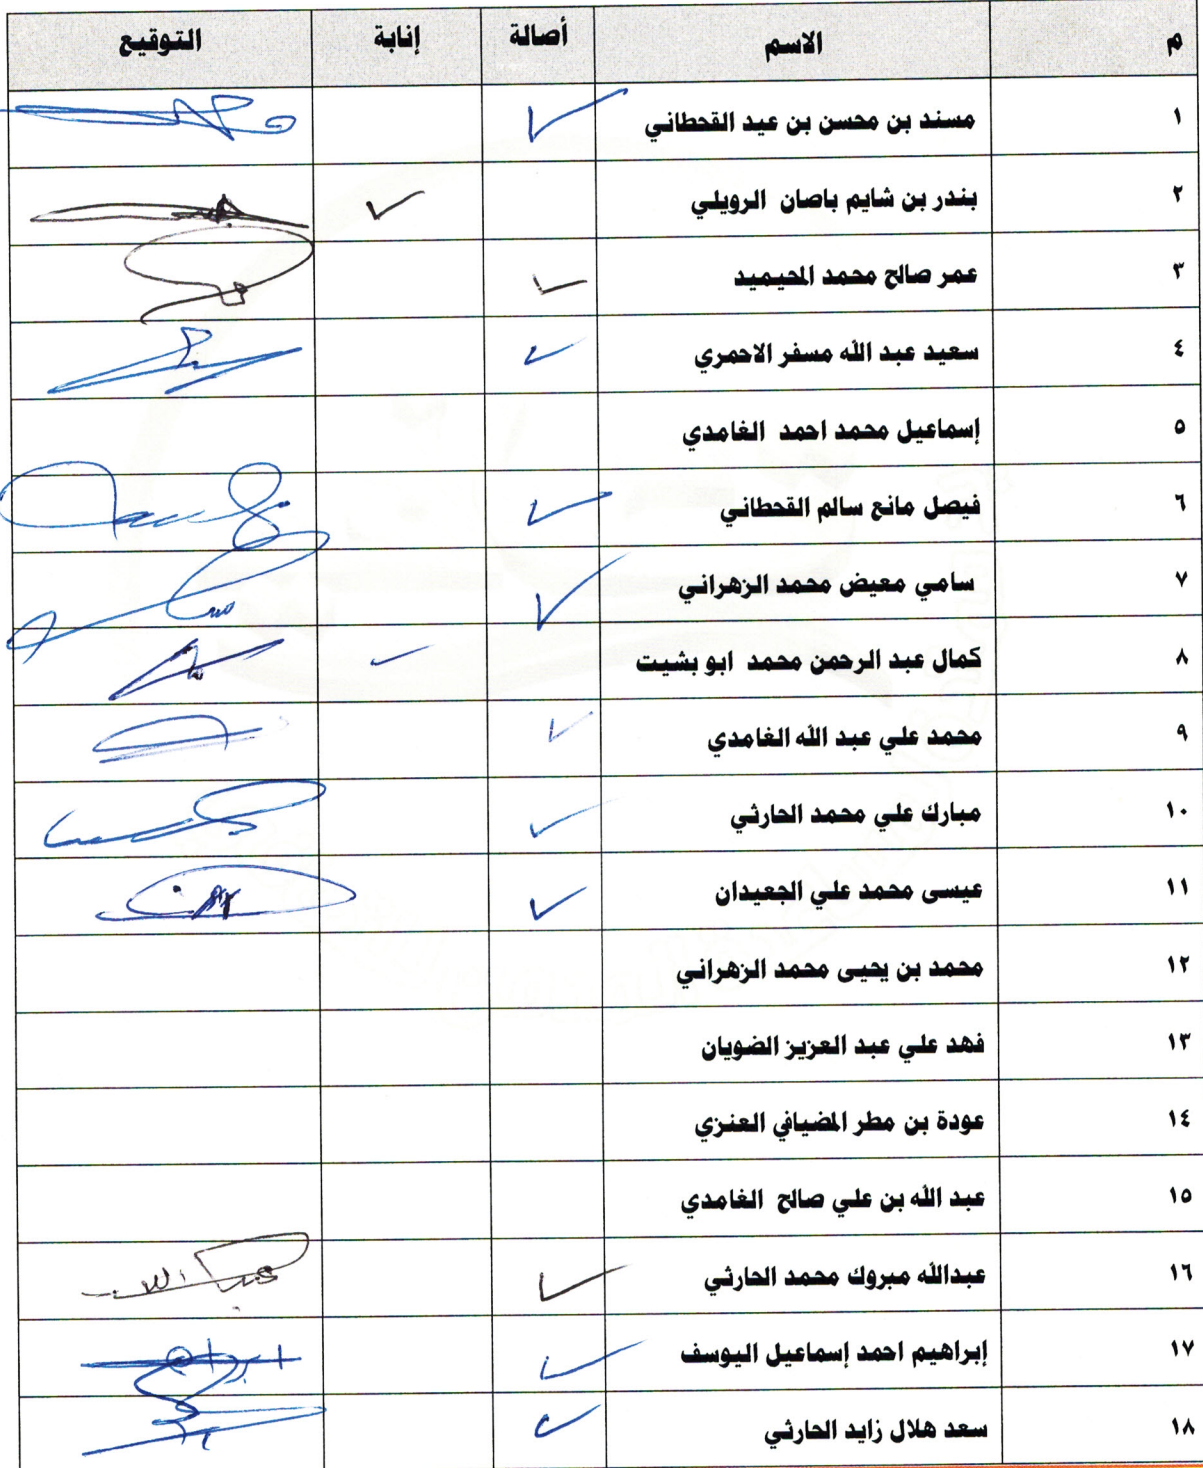 م الاسم أصالة إنابة التوقيع
١ مسند بن محسن بن عيد القحطاني ✓
٢ بندر بن شايم باصان الرويلي ✓
٣ عمر صالح محمد المحيميد ✓
٤ سعيد عبد الله مسفر الاحمري ✓
٥ إسماعيل محمد احمد الغامدي
٦ فيصل مانع سالم القحطاني ✓
٧ سامي معيض محمد الزهراني ✓
٨ كمال عبد الرحمن محمد ابو بشيت ✓
٩ محمد علي عبد الله الغامدي ✓
١٠ مبارك علي محمد الحارثي ✓
١١ عيسى محمد علي الجعيدان ✓
١٢ محمد بن يحيى محمد الزهراني
١٣ فهد علي عبد العزيز الضويان
١٤ عودة بن مطر المضيافي العنزي
١٥ عبد الله بن علي صالح الغامدي
١٦ عبدالله مبروك محمد الحارثي ✓
١٧ إبراهيم احمد إسماعيل اليوسف ✓
١٨ سعد هلال زايد الحارثي ✓